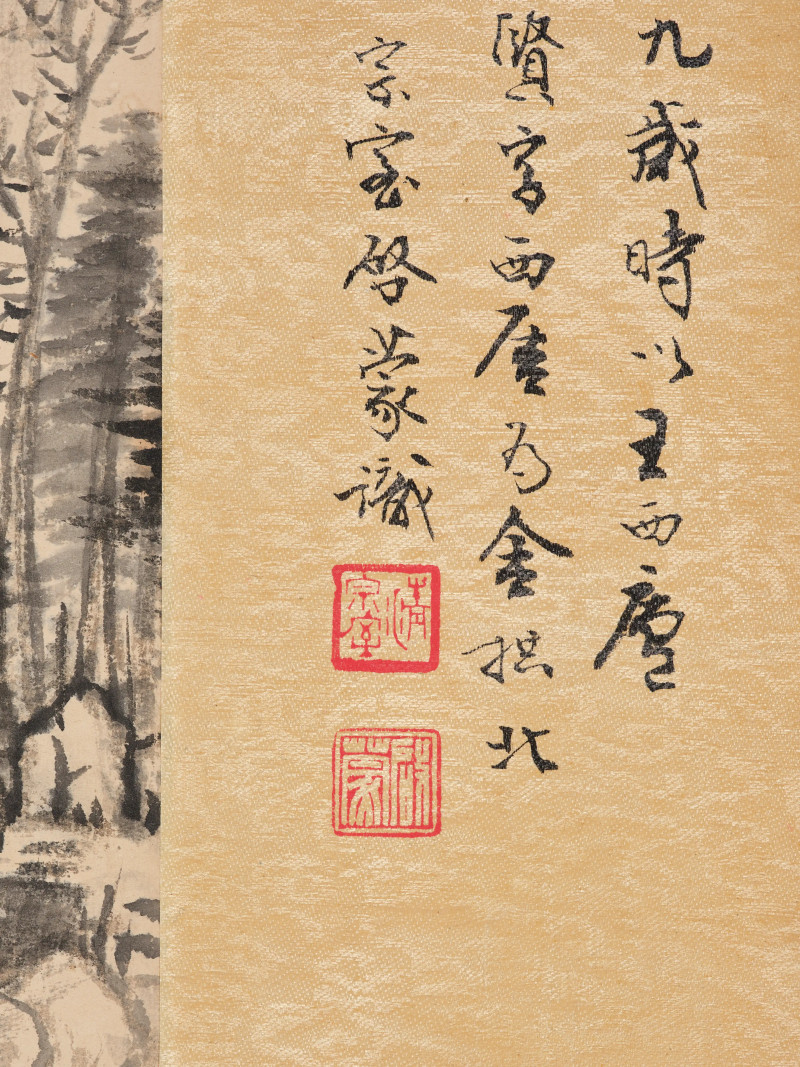 九歲時以王西廬
賢字西厓為金拱北
宗室啓蒙識
清宗室
啓蒙